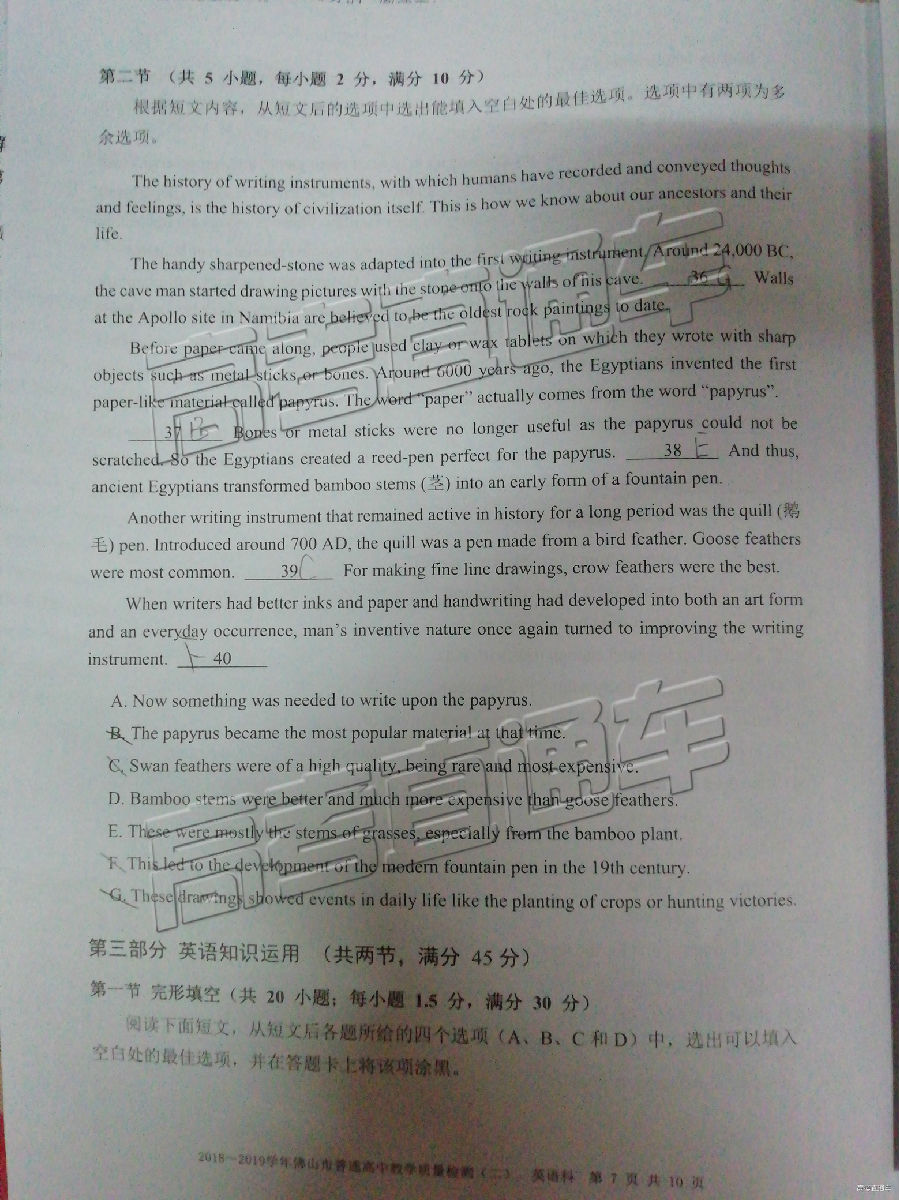 第二节 （共 5 小题，每小题 2 分，满分 10 分）
根据短文内容，从短文后的选项中选出能填入空白处的最佳选项。选项中有两项为多
余选项。
The history of writing instruments, with which humans have recorded and conveyed thoughts
and feelings, is the history of civilization itself. This is how we know about our ancestors and their
life.
The handy sharpened-stone was adapted into the first writing instrument. Around 24,000 BC,
the cave man started drawing pictures with the stone onto the walls of his cave. 36 G Walls
at the Apollo site in Namibia are believed to be the oldest rock paintings to date.
Before paper came along, people used clay or wax tablets on which they wrote with sharp
objects such as metal sticks or bones. Around 6000 years ago, the Egyptians invented the first
paper-like material called papyrus. The word “paper” actually comes from the word “papyrus”.
37 B Bones or metal sticks were no longer useful as the papyrus could not be
scratched. So the Egyptians created a reed-pen perfect for the papyrus. 38 E And thus,
ancient Egyptians transformed bamboo stems (茎) into an early form of a fountain pen.
Another writing instrument that remained active in history for a long period was the quill (鹅
毛) pen. Introduced around 700 AD, the quill was a pen made from a bird feather. Goose feathers
were most common. 39 C For making fine line drawings, crow feathers were the best.
When writers had better inks and paper and handwriting had developed into both an art form
and an everyday occurrence, man’s inventive nature once again turned to improving the writing
instrument. F 40
A. Now something was needed to write upon the papyrus.
B. The papyrus became the most popular material at that time.
C. Swan feathers were of a high quality, being rare and most expensive.
D. Bamboo stems were better and much more expensive than goose feathers.
E. These were mostly the stems of grasses, especially from the bamboo plant.
F. This led to the development of the modern fountain pen in the 19th century.
G. These drawings showed events in daily life like the planting of crops or hunting victories.
第三部分 英语知识运用 （共两节，满分 45 分）
第一节 完形填空（共 20 小题；每小题 1.5 分，满分 30 分）
阅读下面短文，从短文后各题所给的四个选项（A、B、C 和 D）中，选出可以填入
空白处的最佳选项，并在答题卡上将该项涂黑。
2018—2019学年佛山市普通高中教学质量检测（二） 英语科 第 7 页 共 10 页
高考直通车
高考直通车
高考直通车